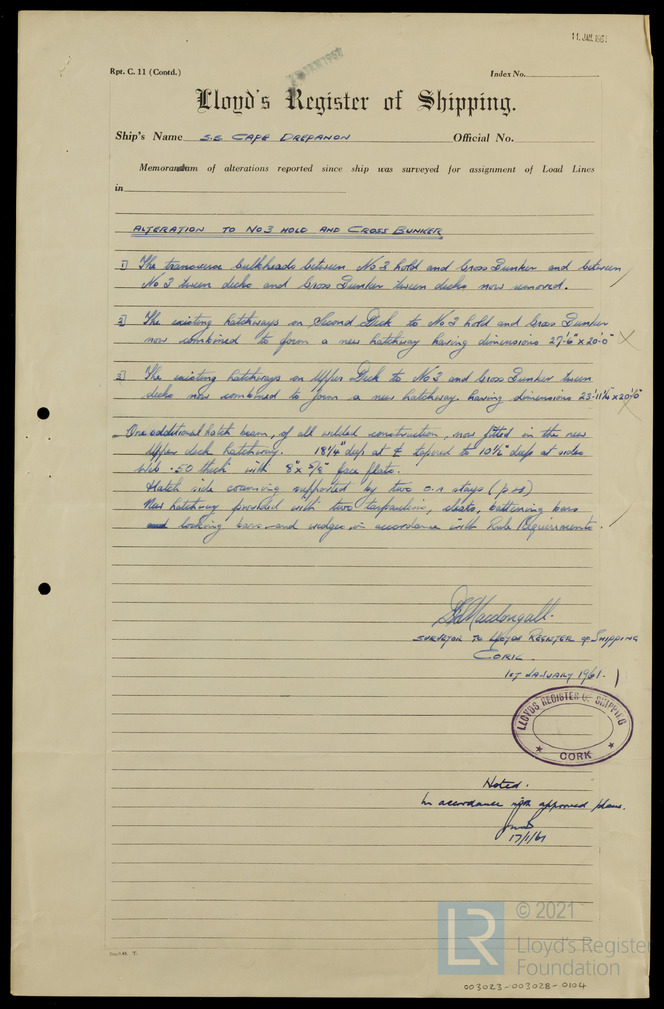 11 JAN 1961
Rpt. C. 11 (Contd.)
Index No.
Lloyd's Register of Shipping.
Ship's Name S.S. CAPE DREPANON
Official No.
Memorandum of alterations reported since ship was surveyed for assignment of Load Lines
in
ALTERATION TO NO3 HOLD AND CROSS BUNKER
1) The transverse bulkheads between No 3 hold and Cross Bunker and between
No 3 tween decks and Cross Bunker tween decks now removed.
2) The existing hatchways on Second Deck to No 3 hold and Cross Bunker
now combined to form a new hatchway having dimensions 27'-6" x 20'-0"
3) The existing hatchways on Upper Deck to No 3 and Cross Bunker tween
decks now combined to form a new hatchway having dimensions 23'-11¼" x 20'-0"
One additional hatch beam, of all welded construction, now fitted in the new
Upper deck hatchway. 18¼" deep at ℄ tapered to 10½" deep at sides
web .50 thick with 8" x 5/8" face flats.
Hatch side coaming supported by two stays (p & s)
New hatchway provided with two tarpaulins, cleats, battening bars
and locking bars and wedges in accordance with Rule Requirements.
Macdougall.
SURVEYOR TO LLOYDS REGISTER OF SHIPPING
CORK.
1ST JANUARY 1961.
LLOYDS REGISTER OF SHIPPING
CORK
Noted.
In accordance with approved plans.
17/1/61
LR
© 2021
Lloyd's Register
Foundation
003023-003028-0104